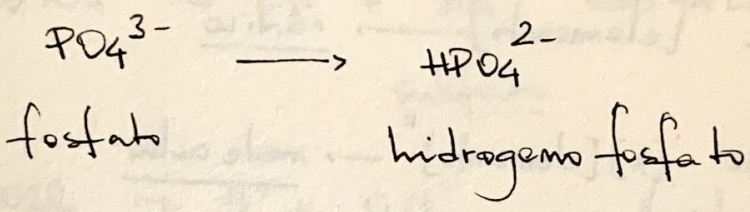 PO₄³⁻ ⟶ HPO₄²⁻
fosfato hidrogeno fosfato